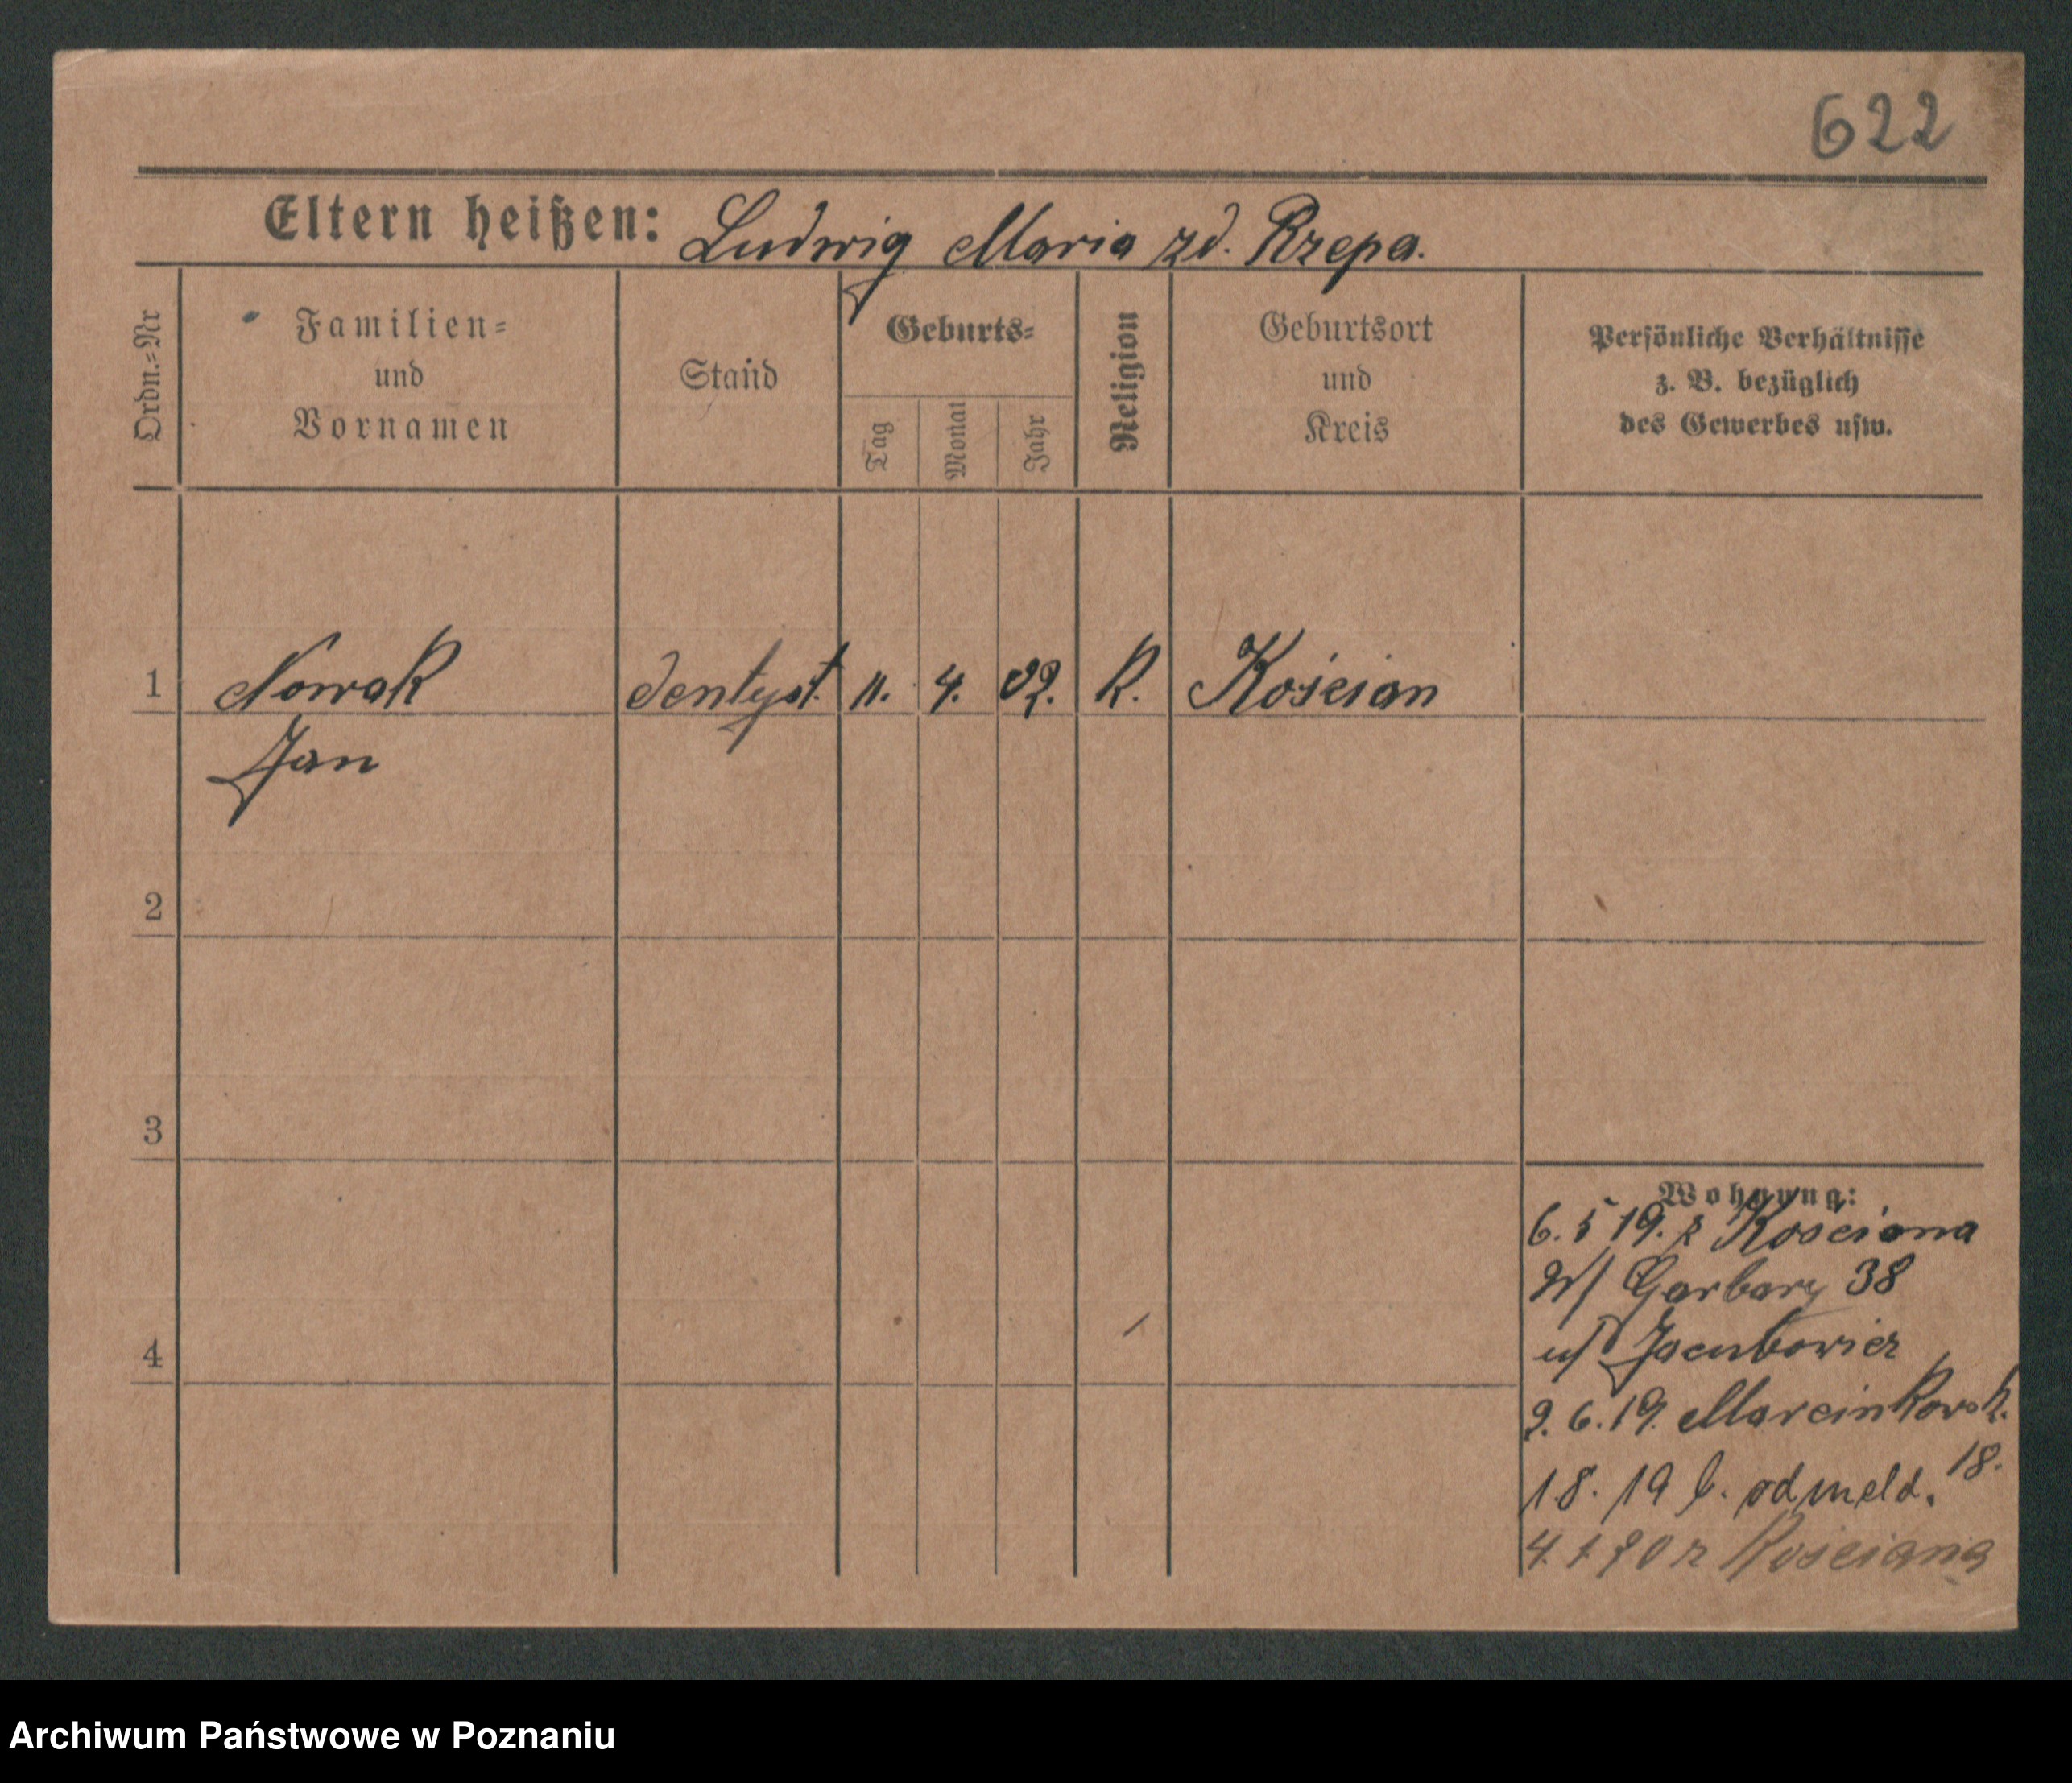 622
Eltern heißen: Ludwig Maria zd. Rzepa.
Ordn.=Nr
Familien=
und
Vornamen
Stand
Geburts=
Tag
Monat
Jahr
Religion
Geburtsort
und
Kreis
Persönliche Verhältnisse
z. B. bezüglich
des Gewerbes usw.
1 Nowak dentyst. 11. 4. 02. K. Kościan
Jan
2
3
4
Wohnung:
6. 5 19. z Kościana
W/ Garbary 38
u/ Jacubowicz
2. 6. 19. Marcinkowsk.
18.
1.8. 19 b. odmeld.
4. 1 20 z Kościana
Archiwum Państwowe w Poznaniu